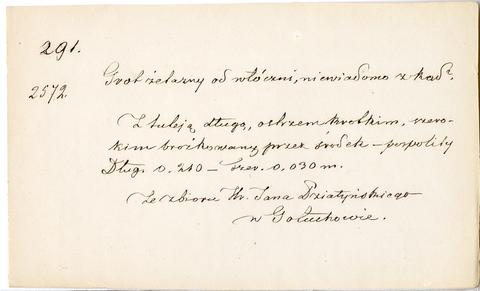 291.
2572.
Grot żelazny od włóczni, niewiadomo z kąd.
Z tuleją długą, ostrzem krótkim, szero-
kim brózdowany przez środek – pospolity
Dług. 0,210 – Szer. 0,030 m.
Ze zbioru Hr. Jana Działyńskiego
w Gołuchowie.